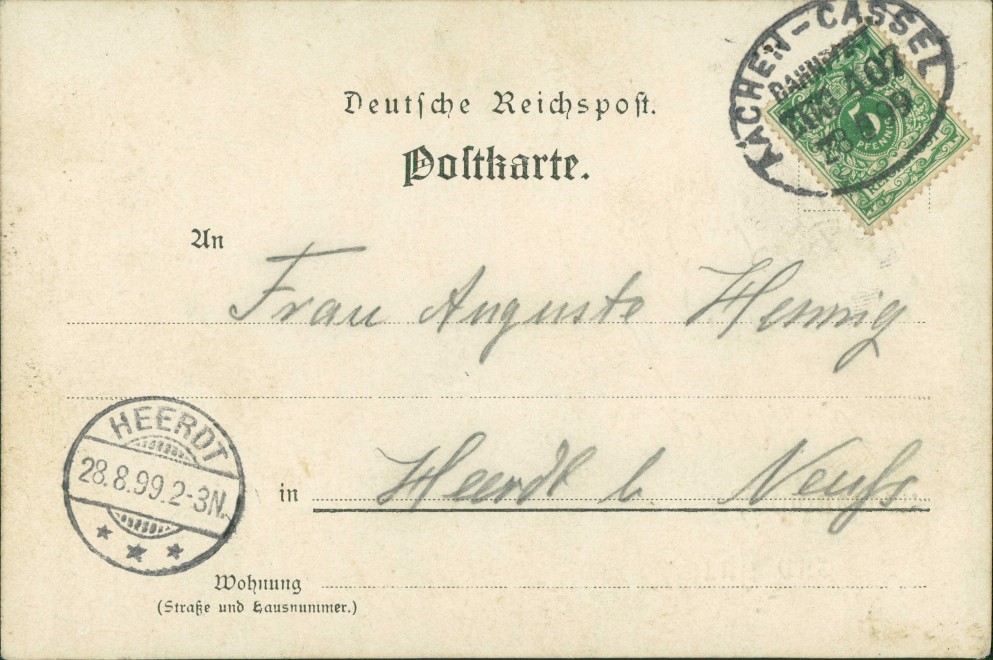 AACHEN-CASSEL
BAHNPOST
ZUG 407
28 8 99
5
PFENNIG
Deutſche Reichspoſt.
Poſtkarte.
An
Frau Auguste Hennig
HEERDT
28.8.99.2-3N.
in Heerdt b. Neuſs.
Wohnung
(Straße und Hausnummer.)